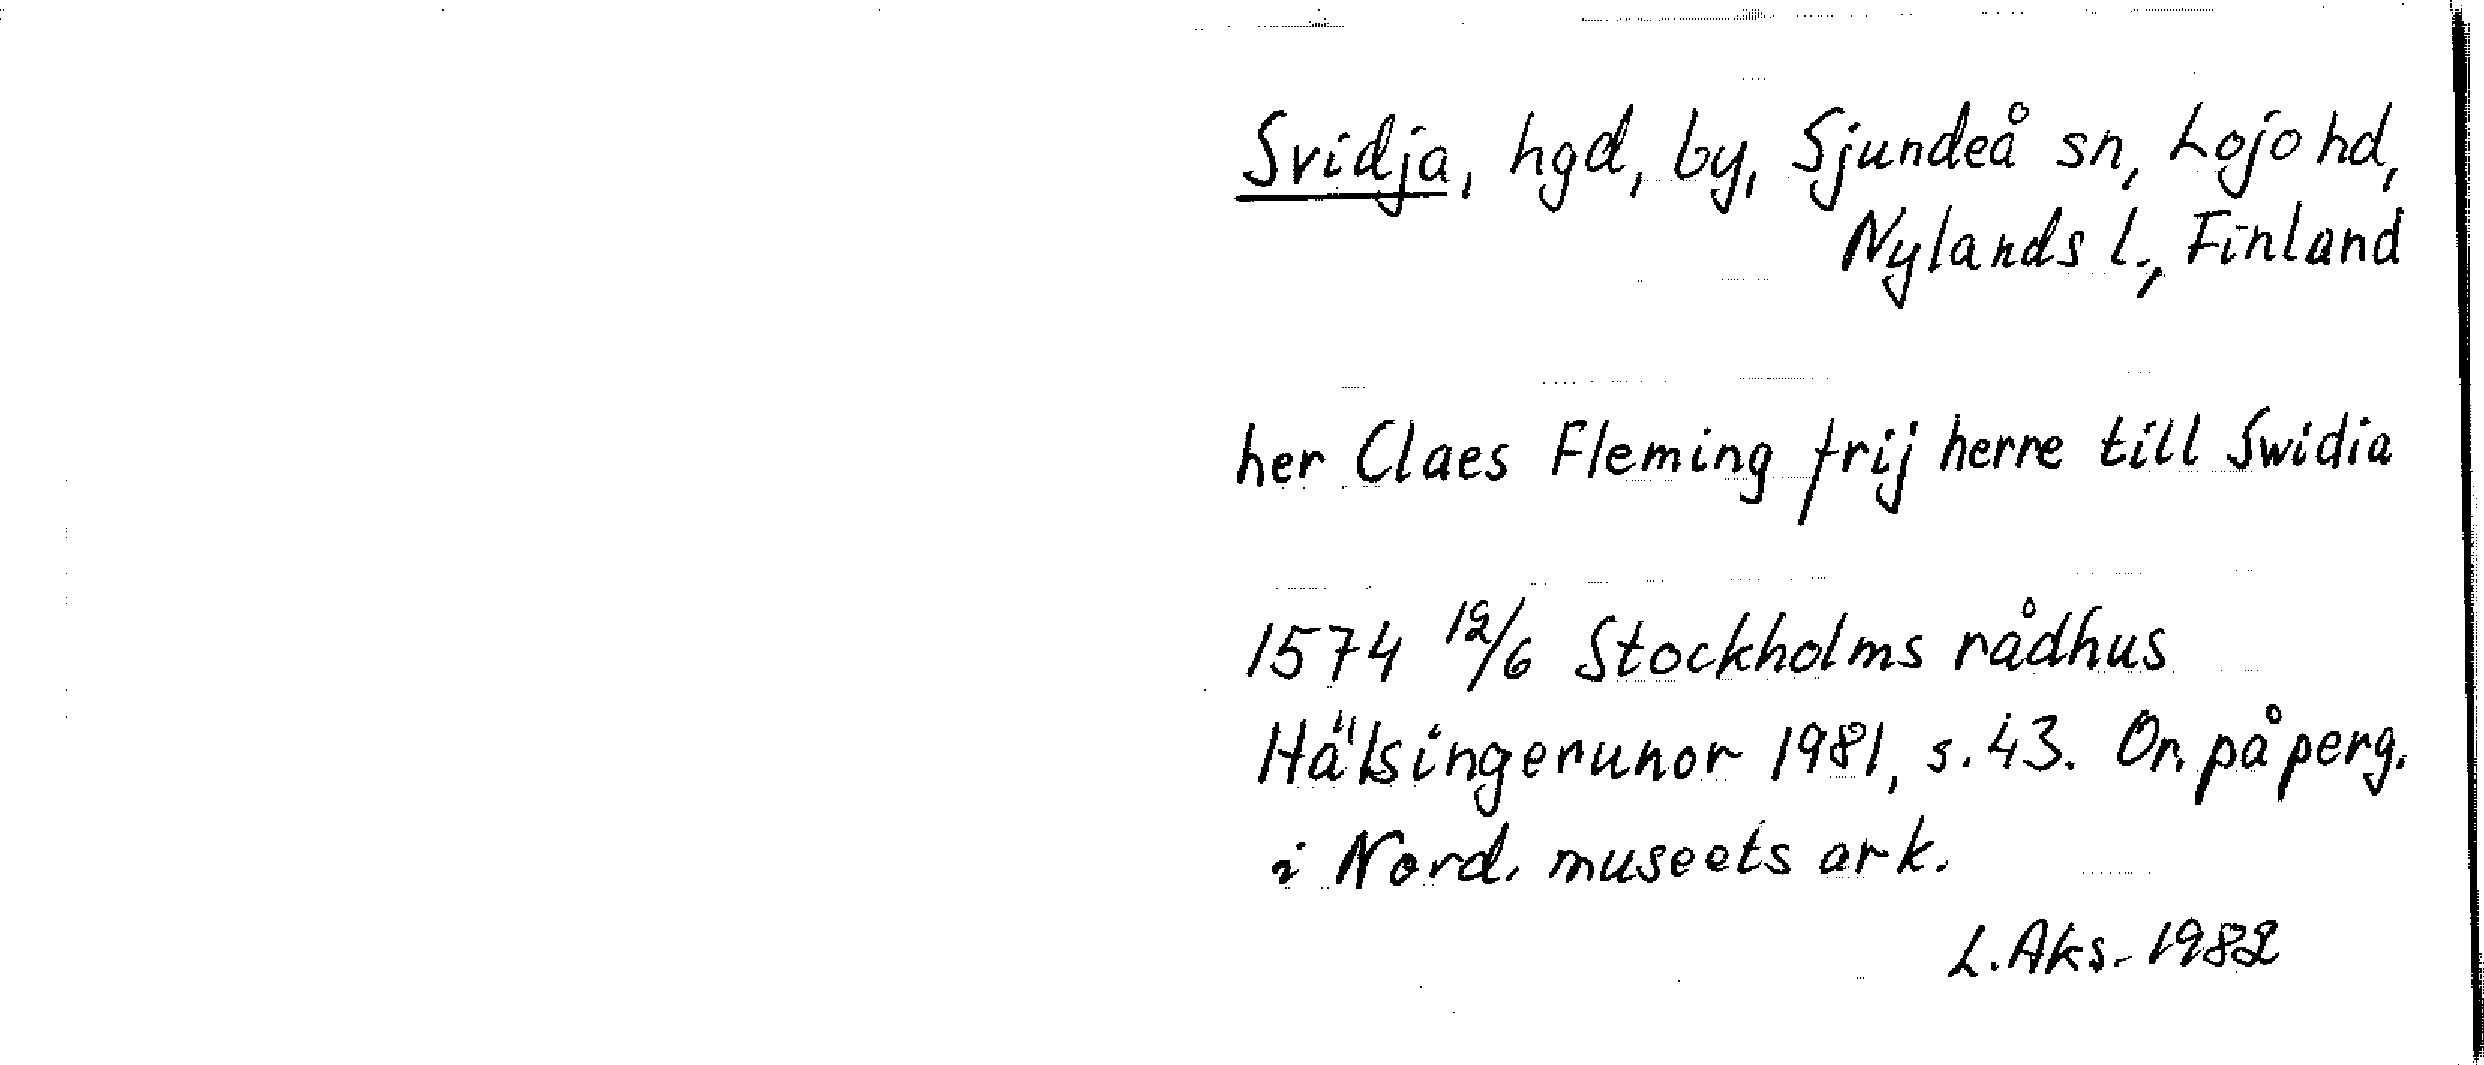 Svidja, hgd, by, Sjundeå sn, Lojo hd,
Nylands l., Finland
her Claes Fleming frij herre till Swidia
1574 12/6 Stockholms rådhus
Hälsingerunor 1981, s. 43. Or. på perg.
i Nord. museets ark.
L. Aks. 1982